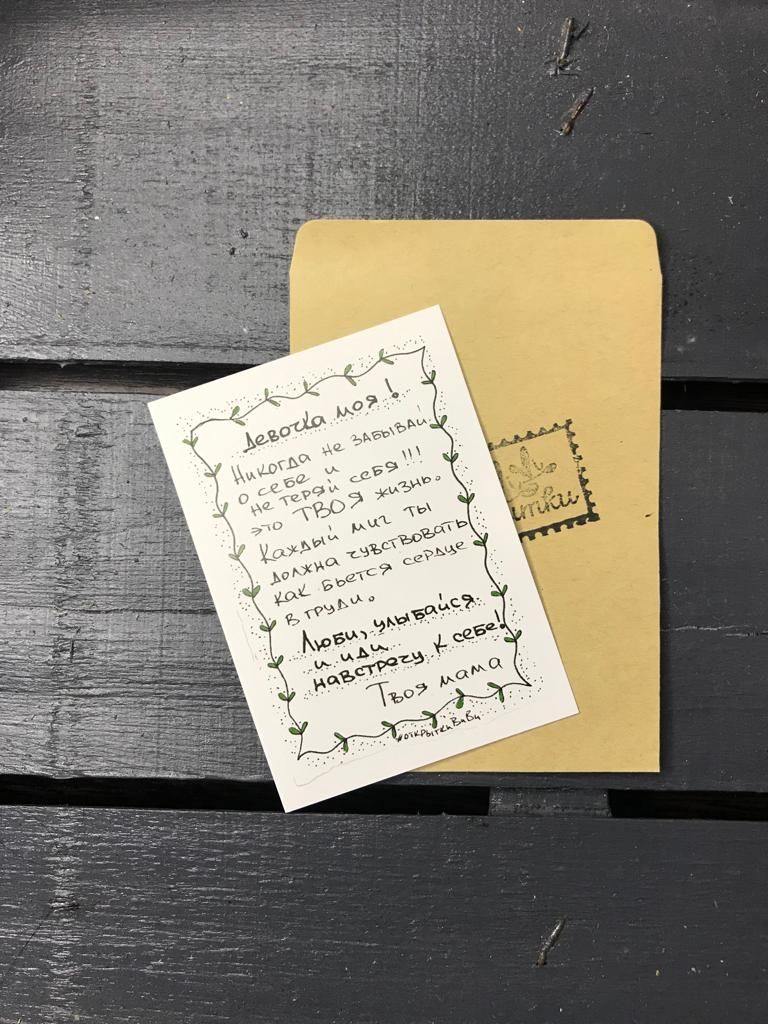 Девочка моя!
Никогда не забывай
о себе и
не теряй себя!!!
это ТВОЯ жизнь.
Каждый миг ты
должна чувствовать
как бьется сердце
в груди.
Люби, улыбайся
и иди
навстречу к себе!
Твоя мама
#открыткиВиВи